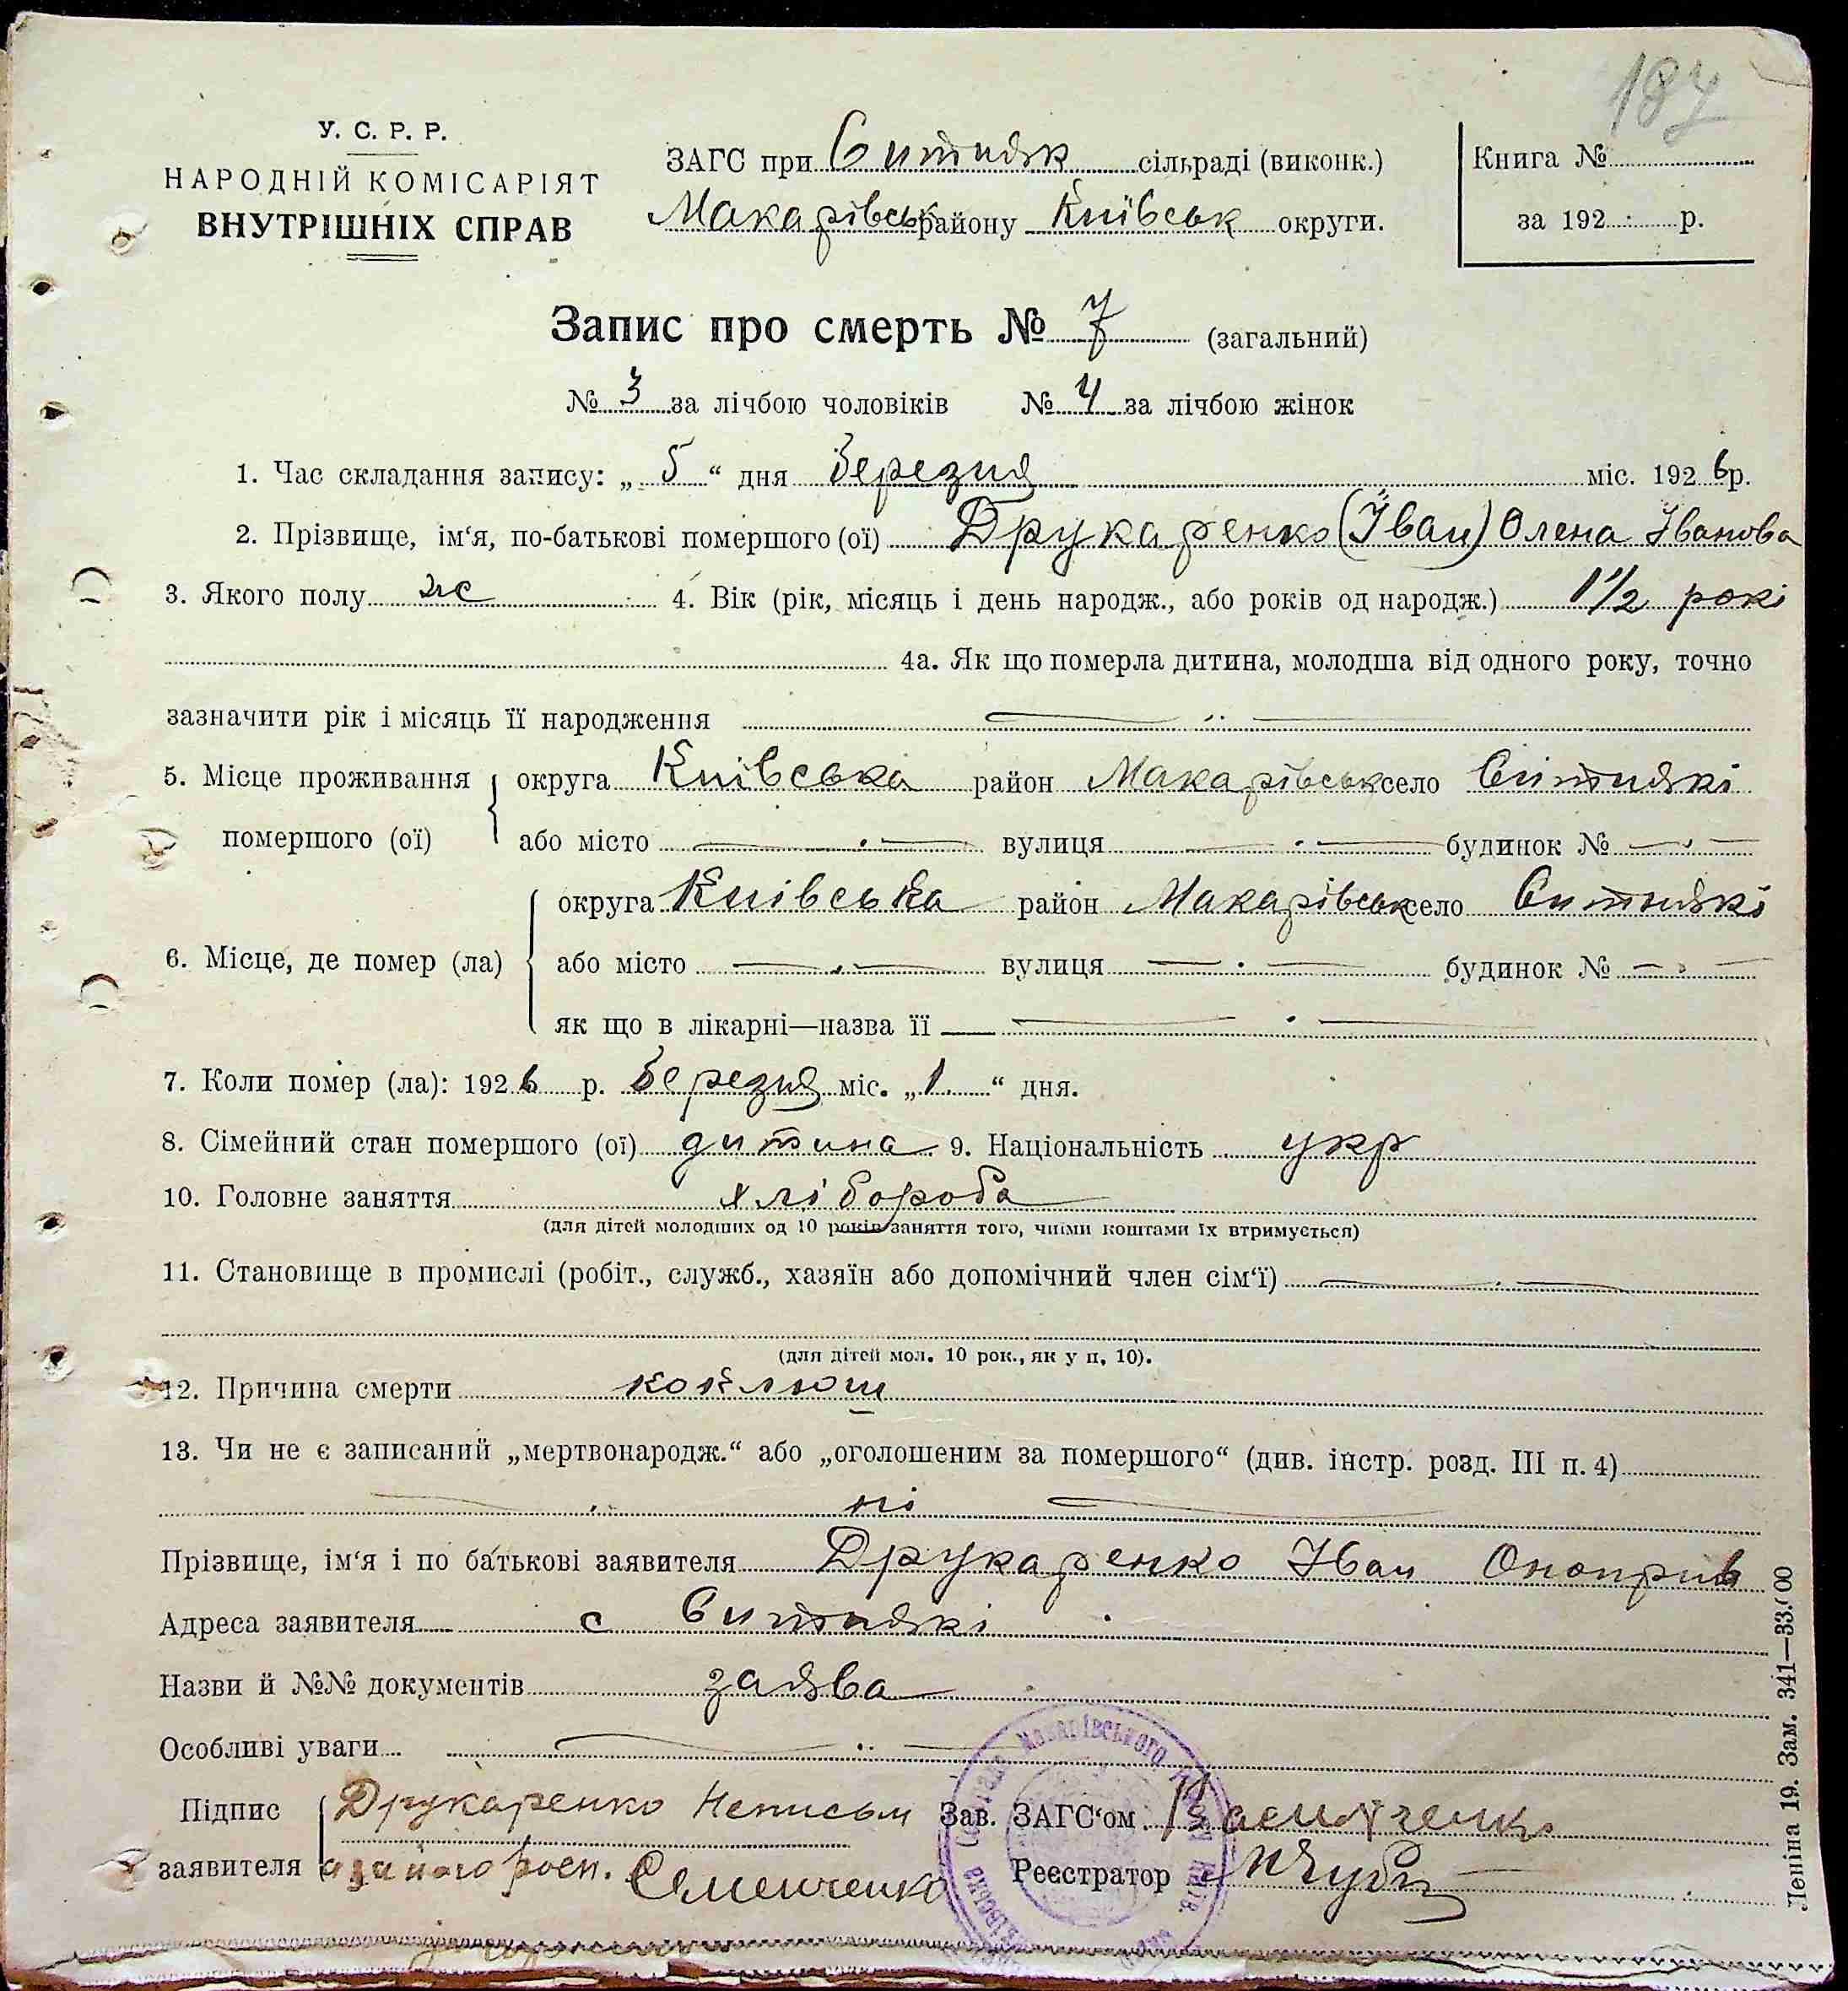 187
У. С. Р. Р.
НАРОДНІЙ КОМІСАРІЯТ
ВНУТРІШНІХ СПРАВ
ЗАГС при Ситняк сільраді (виконк.)
Макарівськ району Київськ округи.
Книга №
за 192 р.
Запис про смерть № 7 (загальний)
№ 3 за лічбою чоловіків № 4 за лічбою жінок
1. Час складання запису: „ 5 “ дня Березня міс. 192 6 р.
2. Прізвище, ім‘я, по-батькові помершого (ої) Друкаренко (Іван) Олена Іванова
3. Якого полу ж 4. Вік (рік, місяць і день народж., або років од народж.) 1 1/2 рокі
4а. Як що померла дитина, молодша від одного року, точно
зазначити рік і місяць її народження
5. Місце проживання помершого (ої) округа Київська район Макарівськ село Ситнякі
або місто вулиця будинок №
6. Місце, де помер (ла) округа Київська район Макарівськ село Ситнякі
або місто вулиця будинок №
як що в лікарні—назва її
7. Коли помер (ла): 192 6 р. Березня міс. „ 1 “ дня.
8. Сімейний стан помершого (ої) дитина 9. Національність укр
10. Головне заняття хлібороба
(для дітей молодших од 10 років заняття того, чиїми коштами їх втримується)
11. Становище в промислі (робіт., служб., хазяїн або допомічний член сім‘ї)
(для дітей мол. 10 рок., як у п. 10).
12. Причина смерти коклюш
13. Чи не є записаний „мертвонародж.“ або „оголошеним за помершого“ (див. інстр. розд. III п. 4)
ні
Прізвище, ім‘я і по батькові заявителя Друкаренко Іван Оноприів
Адреса заявителя с Ситнякі
Назви й №№ документів заява
Особливі уваги
Підпис заявителя Друкаренко Неписьм
а за його росп. Семенченко
Зав. ЗАГС‘ом
Реєстратор
Макарівського
Леніна 19. Зам. 341—33.000